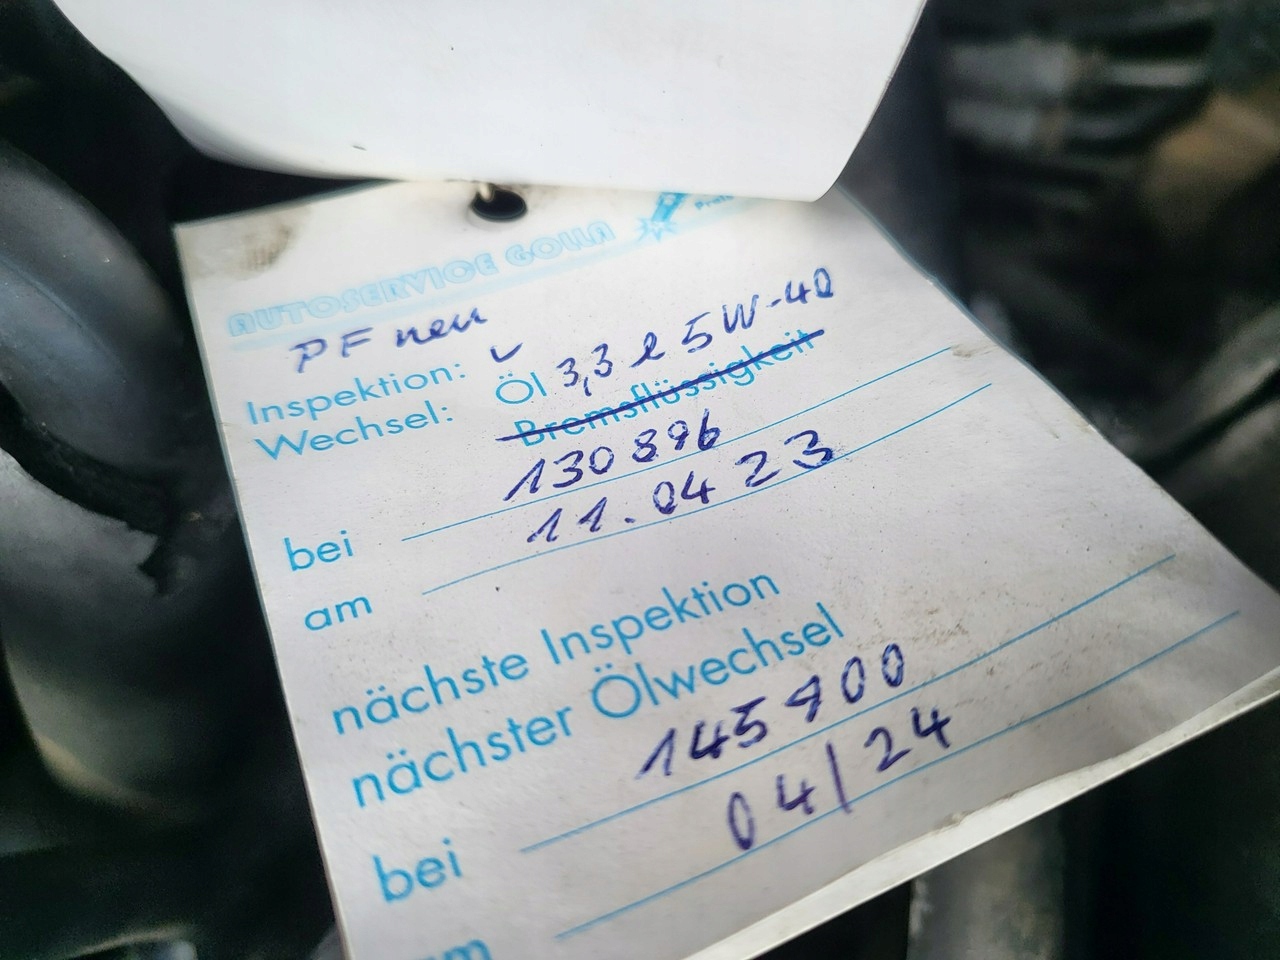 AUTOSERVICE GOLLA
PF neu
Inspektion: ✓
Wechsel: Öl 3,3 l 5W-40
Bremsflüssigkeit
bei 130 896
am 11.04 23
nächste Inspektion
nächster Ölwechsel
bei 145 900
am 04/24